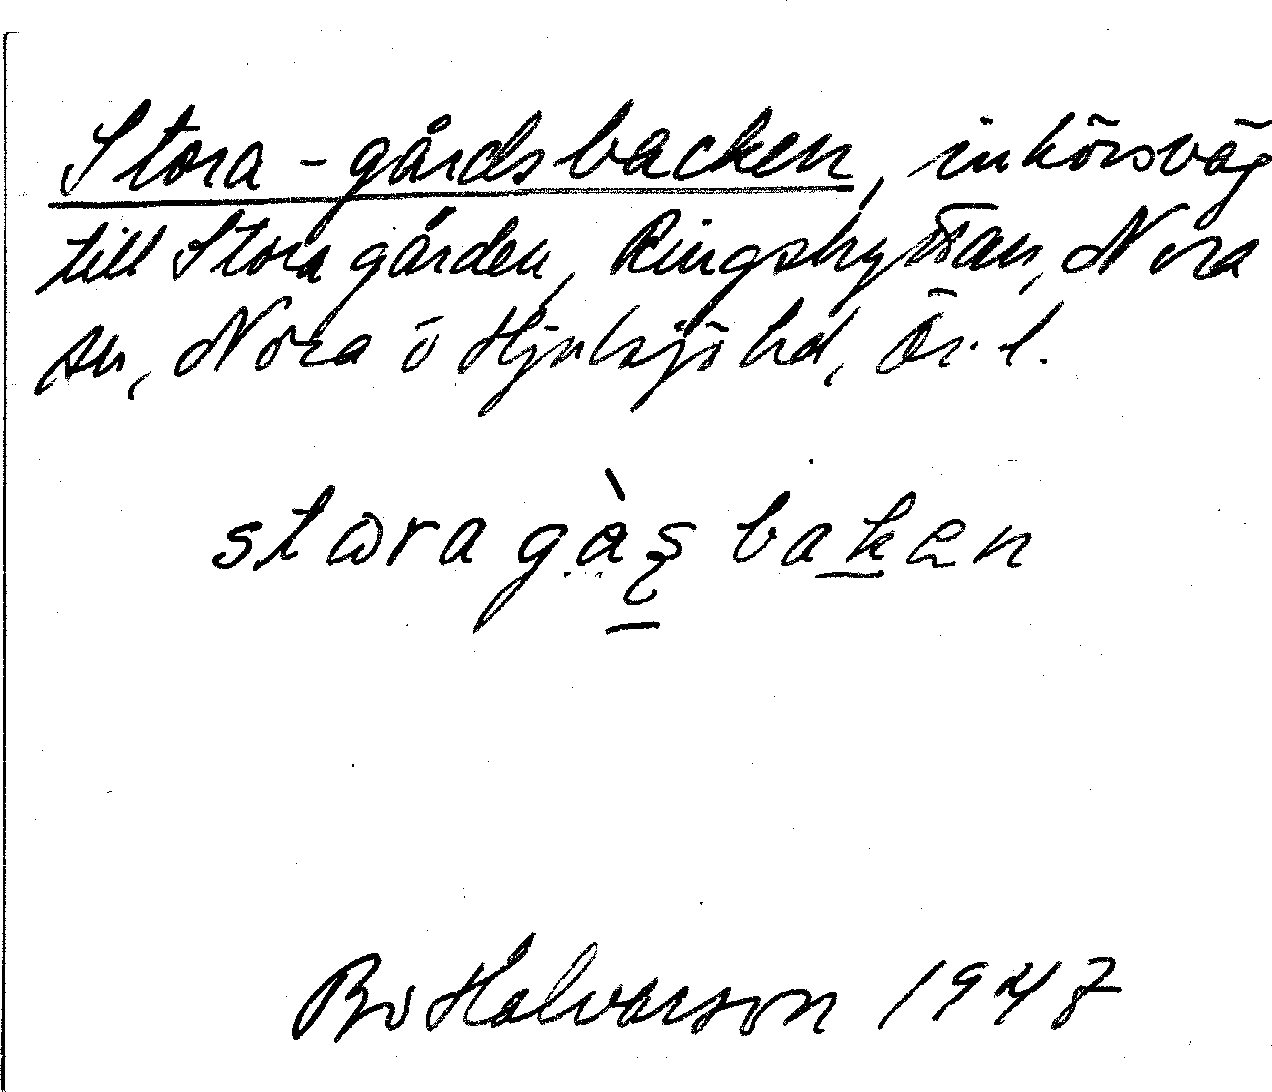 Stora-gårdsbacken, inkörsväg
till Stora gården, Ringshyttan, Nora
sn, Nora o Hjulsjö hd, Ör. l.
stɷra gàʂ baken
Bo Halvarson 1947